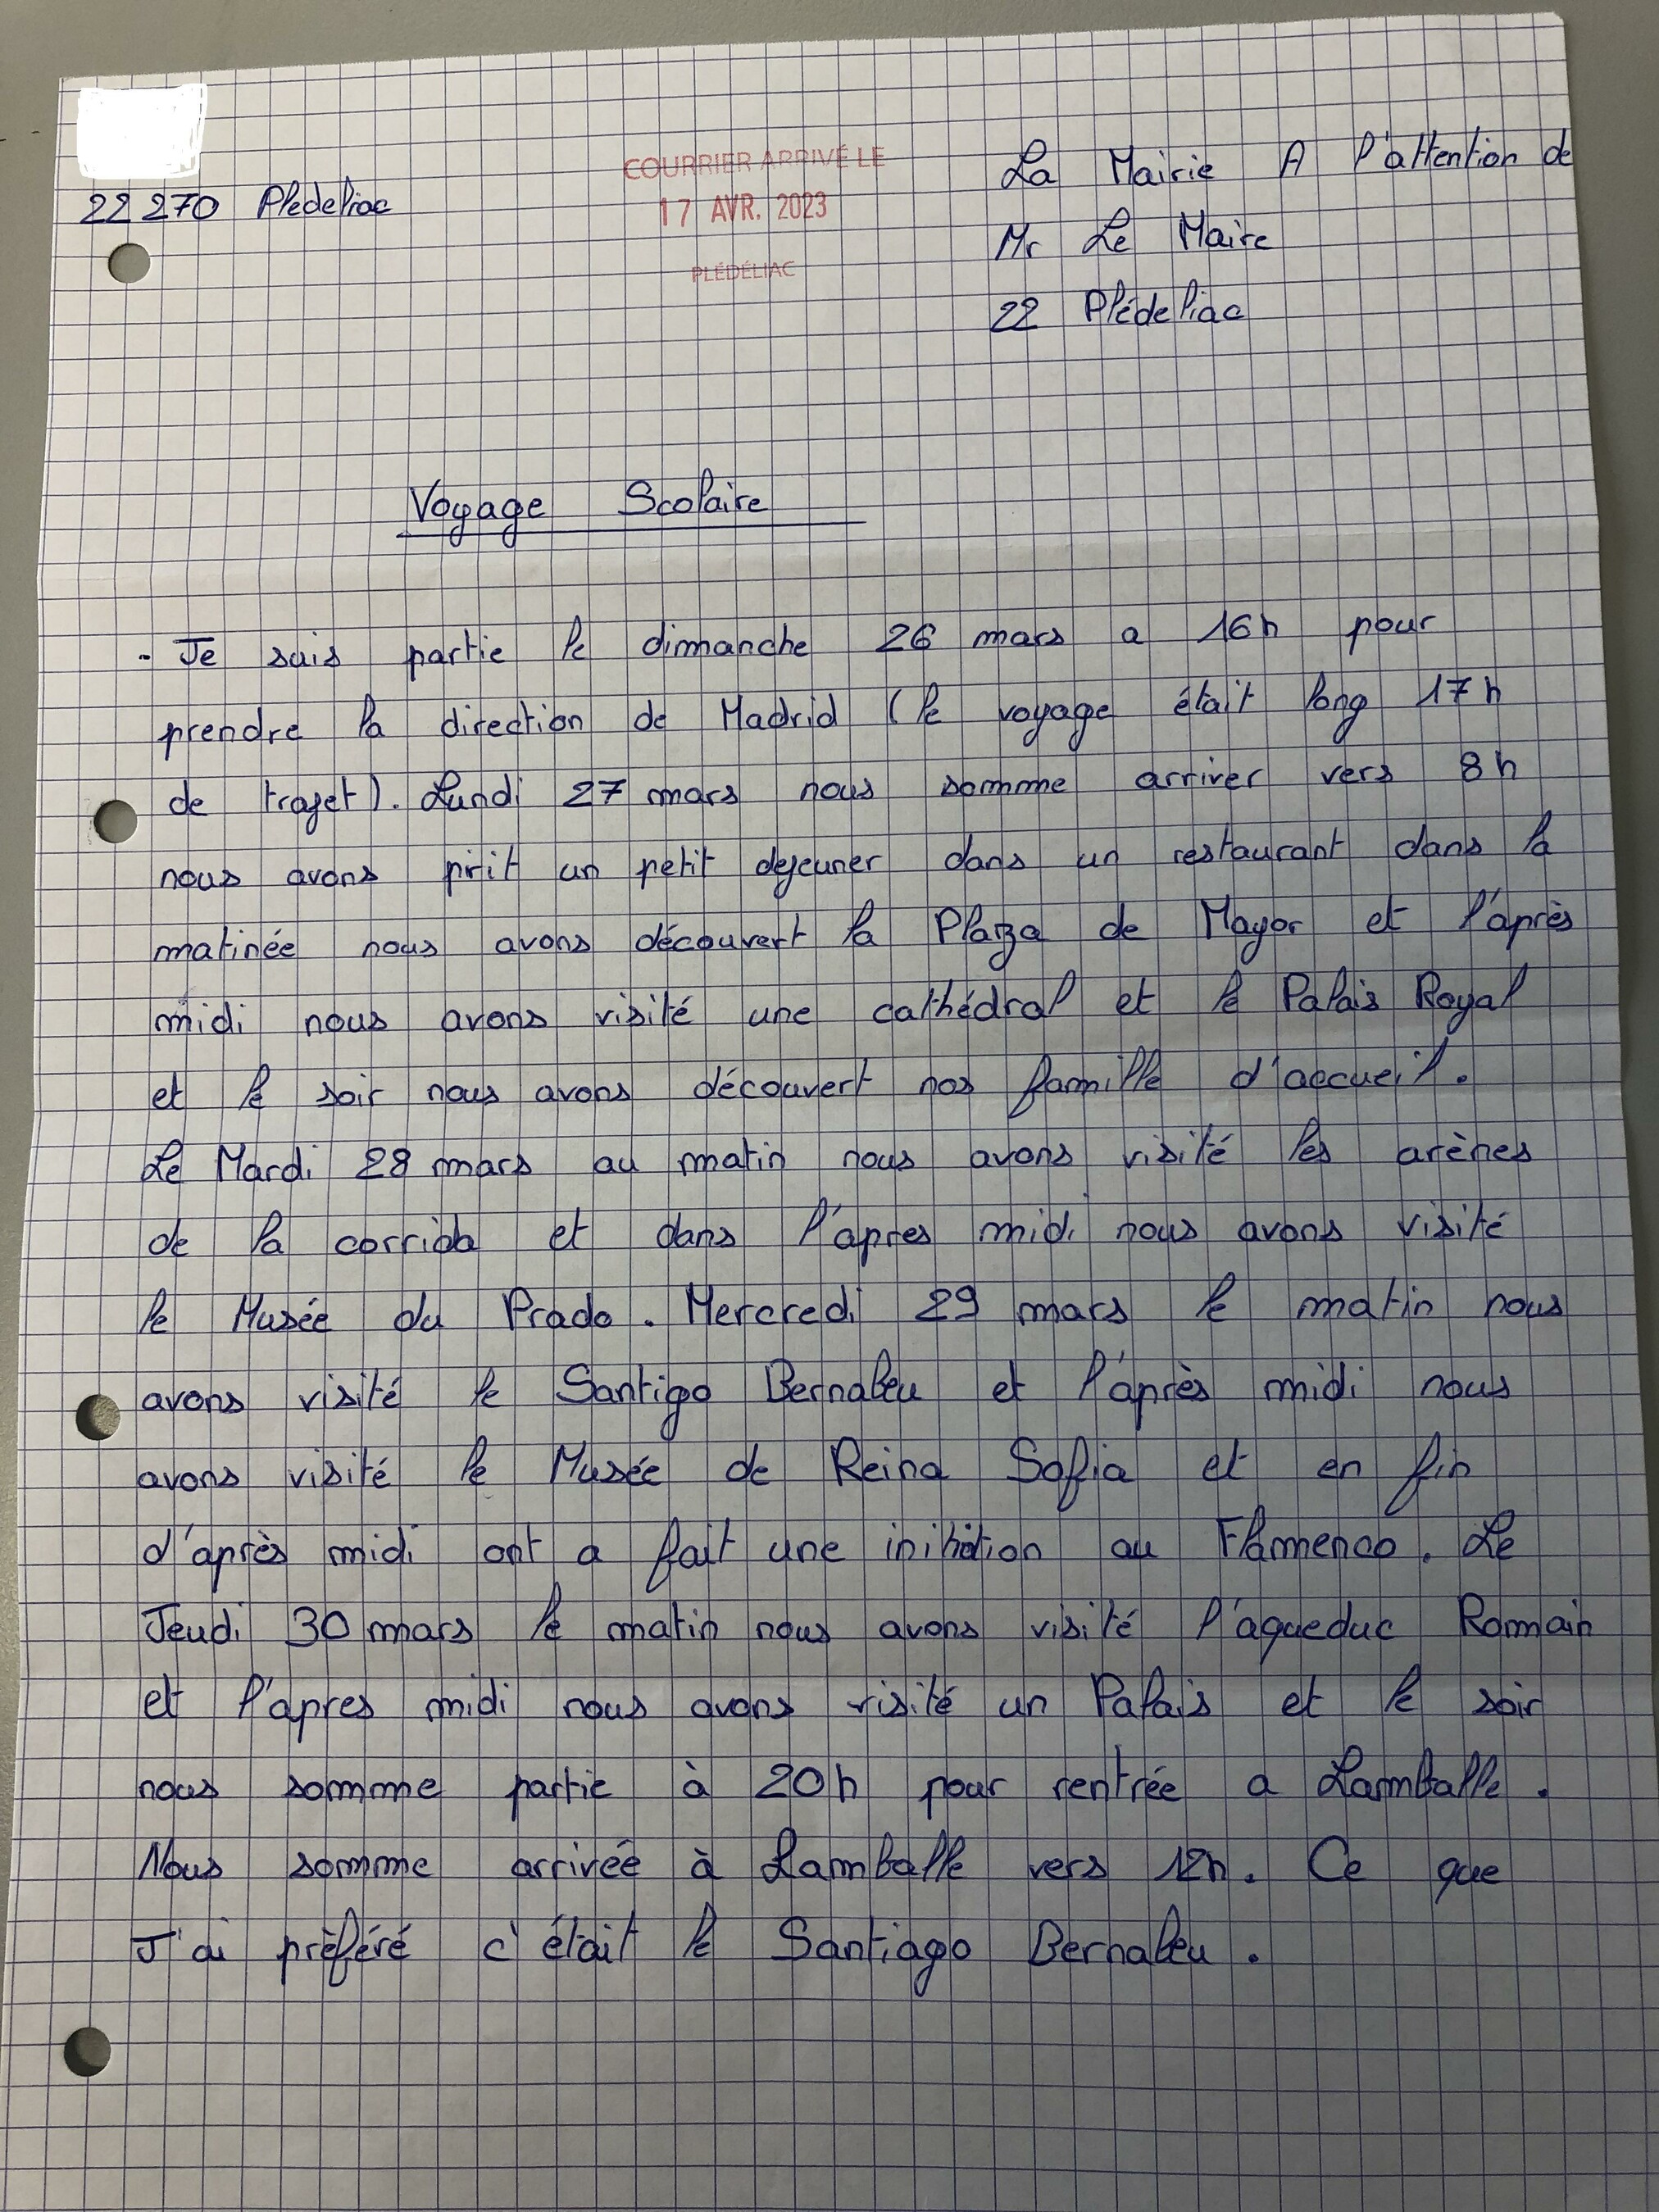 22 270 Plédeliac
COURRIER ARRIVÉ LE
17 AVR. 2023
PLÉDÉLIAC
La Mairie A l'attention de
Mr Le Maire
22 Plédeliac
Voyage Scolaire
- Je suis partie le dimanche 26 mars a 16h pour
prendre la direction de Madrid (le voyage était long 17h
de trajet). Lundi 27 mars nous somme arriver vers 8h
nous avons prit un petit dejeuner dans un restaurant dans la
matinée nous avons découvert la Plaza de Mayor et l'après
midi nous avons visité une cathédral et le Palais Royal
et le soir nous avons découvert nos famille d'accueil.
Le Mardi 28 mars au matin nous avons visité les arènes
de la corrida et dans l'apres midi nous avons visité
le Musée du Prado. Mercredi 29 mars le matin nous
avons visité le Santigo Bernabeu et l'après midi nous
avons visité le Musée de Reina Sofia et en fin
d'après midi ont a fait une inihition au Flamenco. Le
Jeudi 30 mars le matin nous avons visité l'aqueduc Romain
et l'apres midi nous avons visité un Palais et le soir
nous somme partie à 20h pour rentrée a Lamballe.
Nous somme arrivée à Lamballe vers 12h. Ce que
J'ai préféré c'était le Santiago Bernabeu.